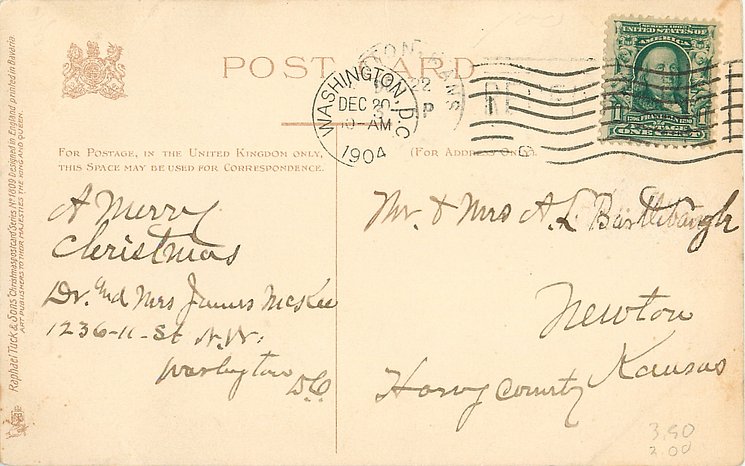 POST CARD
WASHINGTON, D.C.
DEC 20
10-AM
1904
SERIES 1902
UNITED STATES OF
AMERICA
FRANKLIN
POSTAGE
ONE CENT
FOR POSTAGE, IN THE UNITED KINGDOM ONLY,
THIS SPACE MAY BE USED FOR CORRESPONDENCE.
(FOR ADDRESS ONLY.)
A Merry
Christmas
Dr. and Mrs James McKee
1236-11-St N.W.
Washington
D.C.
Mr. & Mrs A. L. Bartlebaugh
Newton
Kansas
Harvy County
3.50
2.00
Raphael Tuck & Sons' Christmas postcard Series No 1809 Designed in England printed in Bavaria
ART PUBLISHERS TO THEIR MAJESTIES THE KING AND QUEEN.